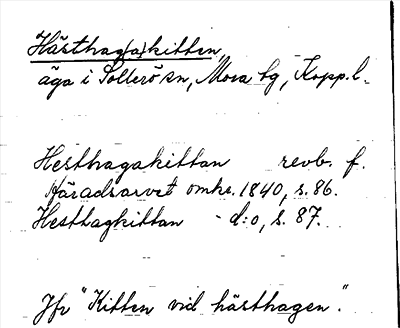 Hästhag(a)kitten,
äga i Sollerö sn, Mora tg, Kopp.l.
Hesthagakittan revb. f.
häradsarvet omkr. 1840, s. 86.
Hesthagkittan - d:o, s. 87.
Jfr "Kitten vid hästhagen".